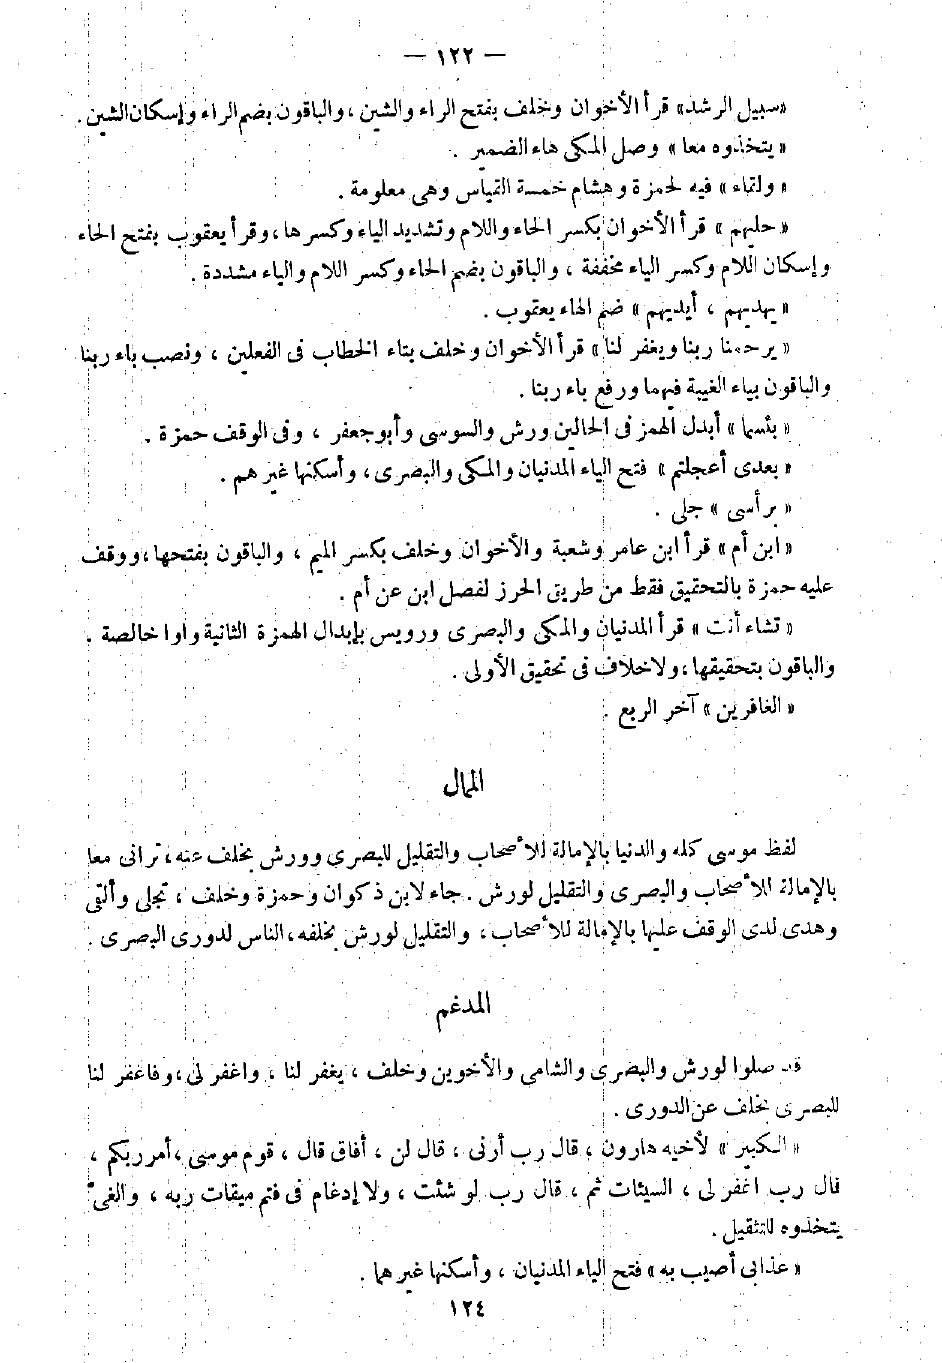 — ١٢٢ —
«سبيل الرشد» قرأ الأخوان وخلف بفتح الراء والشين ، والباقون بضم الراء وإسكان الشين .
« يتخذوه معا » وصل المكى هاء الضمير .
« ولقاء » فيه لحمزة وهشام خمسة القياس وهى معلومة .
« حليهم » قرأ الأخوان بكسر الحاء واللام وتشديد الياء وكسرها ، وقرأ يعقوب بفتح الحاء
وإسكان اللام وكسر الياء مخففة ، والباقون بضم الحاء وكسر اللام والياء مشددة .
« يهديهم ، أيديهم » ضم الهاء يعقوب .
« يرحمنا ربنا ويغفر لنا » قرأ الأخوان وخلف بتاء الخطاب فى الفعلين ، ونصب باء ربنا
والباقون بياء الغيبة فيهما ورفع باء ربنا .
« بئسما » أبدل الهمز فى الحالين ورش والسوسى وأبو جعفر ، وفى الوقف حمزة .
« بعدى أعجلتم » فتح الياء المدنيان والمكى والبصرى ، وأسكنها غيرهم .
« برأسى » جلى .
« ابن أم » قرأ ابن عامر وشعبة والأخوان وخلف بكسر الميم ، والباقون بفتحها ، ووقف
عليه حمزة بالتحقيق فقط من طريق الحرز لفصل ابن عن أم .
« تشاء أنت » قرأ المدنيان والمكى والبصرى ورويس بإبدال الهمزة الثانية واوا خالصة .
والباقون بتحقيقها ، ولا خلاف فى تحقيق الأولى .
« الغافرين » آخر الربع .
الممال
لفظ موسى كله والدنيا بالإمالة للأصحاب والتقليل للبصرى وورش بخلف عنه ، ترانى معا
بالإمالة للأصحاب والبصرى والتقليل لورش . جاء لابن ذكوان وحمزة وخلف ، تجلى وألقى
وهدى لدى الوقف عليها بالإمالة للأصحاب ، والتقليل لورش بخلفه ، الناس لدورى البصرى .
المدغم
قد ضلوا لورش والبصرى والشامى والأخوين وخلف ، يغفر لنا ، واغفر لى ، وفاغفر لنا
للبصرى بخلف عن الدورى .
« الكبير » لأخيه هارون ، قال رب أرنى ، قال لن ، أفاق قال ، قوم موسى ، أمر ربكم ،
قال رب اغفر لى ، السيئات ثم ، قال رب لو شئت ، ولا إدغام فى فتم ميقات ربه ، والغى
يتخذوه للتثقيل .
« عذابى أصيب به » فتح الياء المدنيان ، وأسكنها غيرهما .
١٢٤